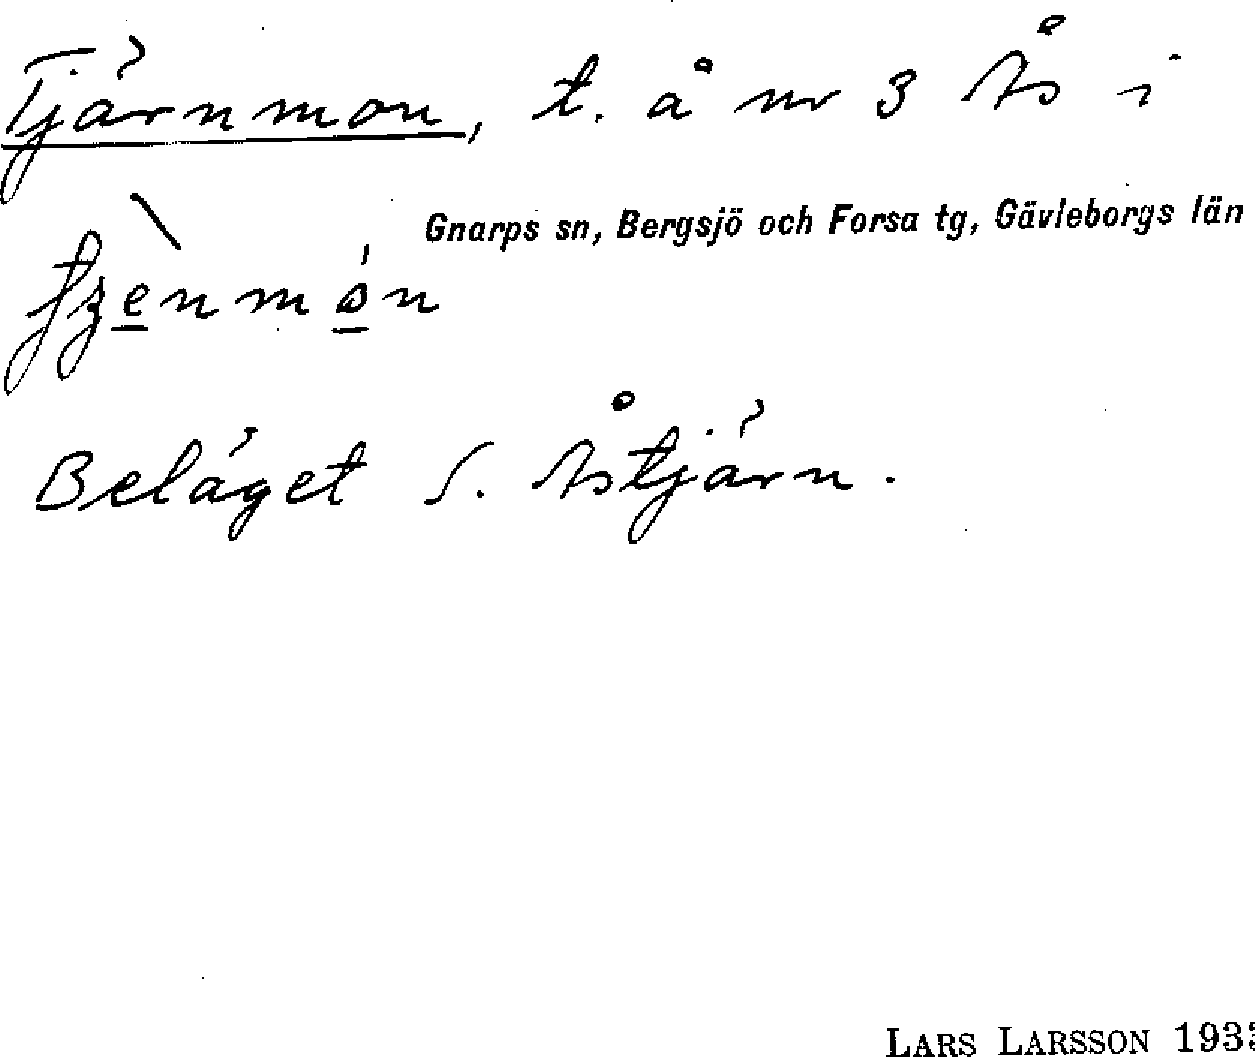 Tjärnmon, t. å nr 3 Ås i
Gnarps sn, Bergsjö och Forsa tg, Gävleborgs län
Beläget S. Åstjärn.
LARS LARSSON 193